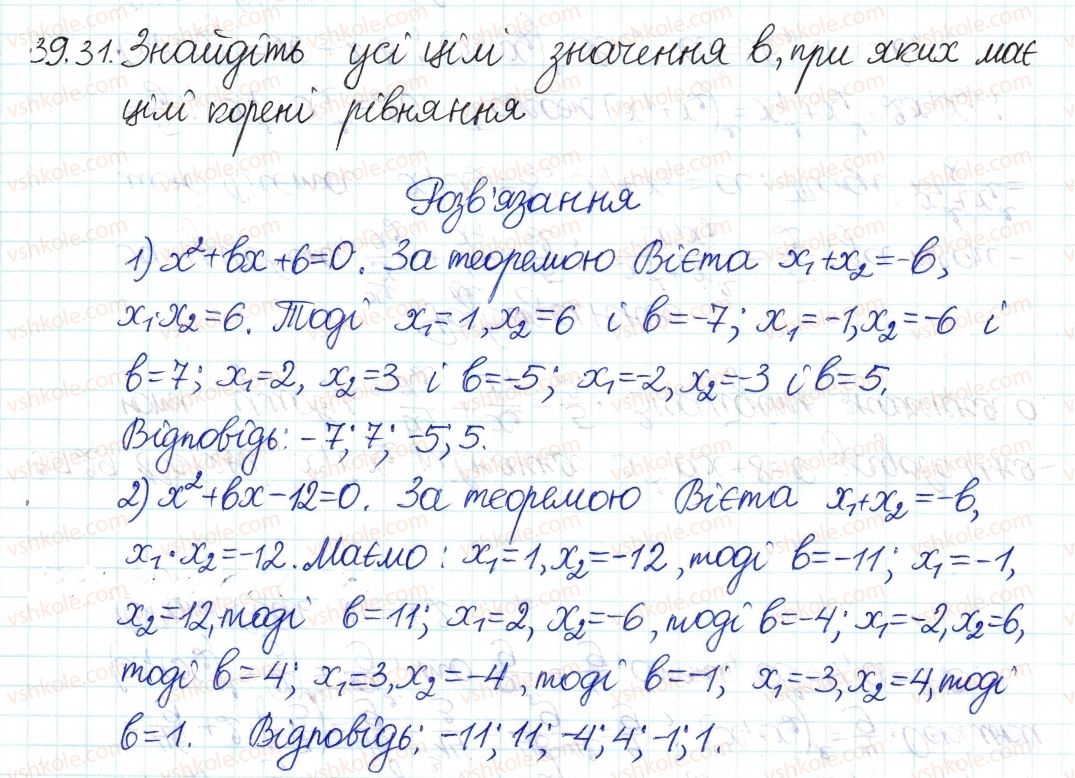 39.31. Знайдіть усі цілі значення b, при яких має
цілі корені рівняння
Розв'язання
1) x²+bx+6=0. За теоремою Вієта x₁+x₂=-b,
x₁·x₂=6. Тоді x₁=1, x₂=6 і b=-7; x₁=-1, x₂=-6 і
b=7; x₁=2, x₂=3 і b=-5; x₁=-2, x₂=-3 і b=5.
Відповідь: -7; 7; -5; 5.
2) x²+bx-12=0. За теоремою Вієта x₁+x₂=-b,
x₁·x₂=-12. Маємо: x₁=1, x₂=-12, тоді b=-11; x₁=-1,
x₂=12, тоді b=11; x₁=2, x₂=-6, тоді b=-4; x₁=-2, x₂=6,
тоді b=4; x₁=3, x₂=-4, тоді b=-1; x₁=-3, x₂=4, тоді
b=1. Відповідь: -11; 11; -4; 4; -1; 1.